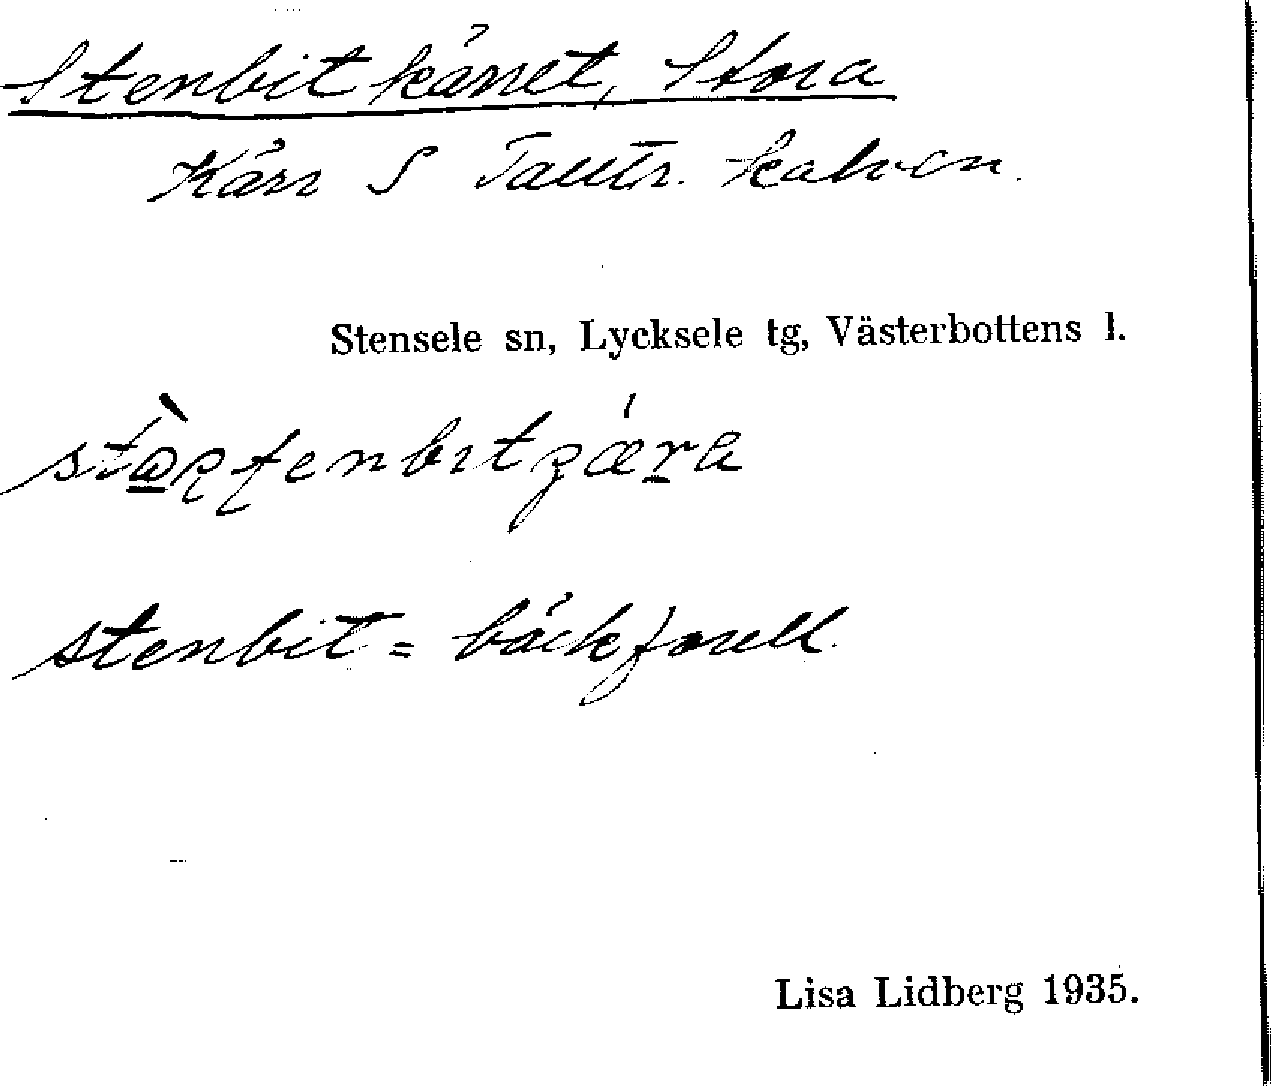 Stenbitkärret, Stora
Kärr S Tallтr. kalven.
Stensele sn, Lycksele tg, Västerbottens l.
stenbit = bäckforell.
Lisa Lidberg 1935.